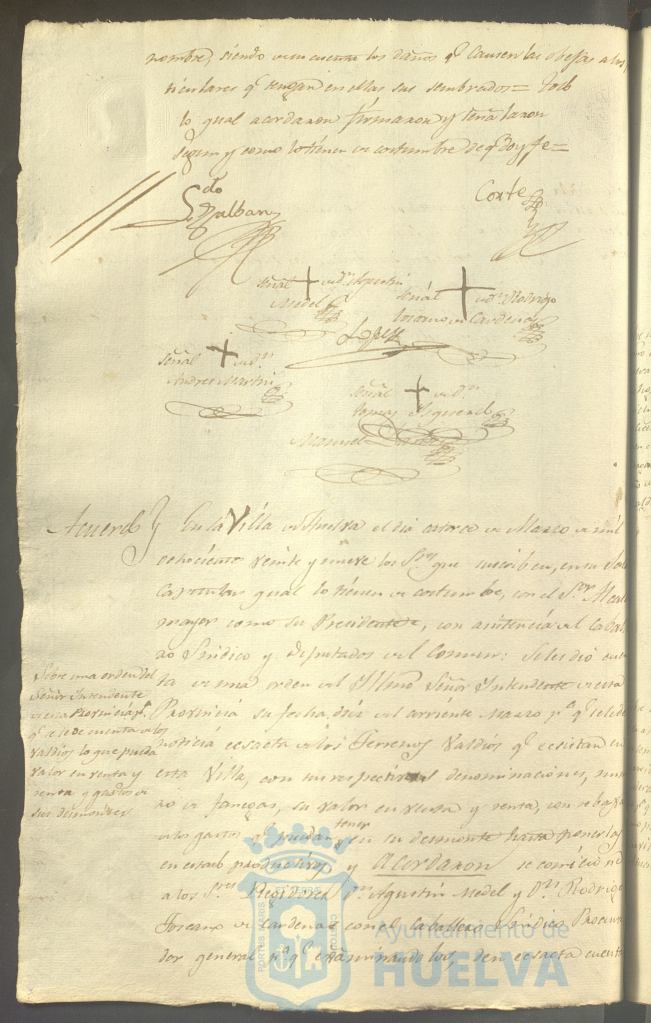 nombre, siendo de su cuenta los daños q.e causen las obejas a los par
ticulares q.e tengan en ellas sus sembrados = todo
lo qual acordaron firmaron y señalaron
segun y como lo tienen de costumbre de q.e doy fe =
S.do Galban
Corte
señal + de D.n Agustin
Medel
señal + de D.n Rodrigo
toscano de Cardenas
Lopez
señal + de D.n
Andres Martin
señal + de D.n
tomas Figueredo
Manuel
Acuerdo } En la Villa de Huelva el dia catorce de Marzo de mil
ochociento veinte y nueve los S.res que suscriben, en su Sala
Capitular qual lo tienen de costumbre, con el S.or Alcal
mayor como su Presidente, con asistencia del Caballe
ro Sindico y Diputados del Comun: Se les dió cuen
ta de una orden del Yltmo Señor Yntendente de esta
Provincia su fecha diez del corriente Marzo p.a q.e se le de
noticia ecsacta de los Terrenos Valdios q.e ecsistan en
esta Villa, con sus respectivas denominaciones, nume
ro de fanegas, su valor en venta y renta, con rebaxa
de los gastos q.e puedan tener en su desmonte hasta ponerlos
en estado productivo, y Acordaron se comicio ne
a los S.res Regidores D.n Agustin Medel y D.n Rodrigo
Toscano de Cardenas con el Caballero Sindico Procura
dor general p.a q.e ecsaminandolos, den ecsacta cuenta
Sobre una orden del
Señor Intendente
de esta Provincia p.a
q.e se le de cuenta de los
Valdios lo que pueda
valer en venta y
renta y gastos de
sus desmontes
PORTUS MARIS
Ayuntamiento de
HUELVA